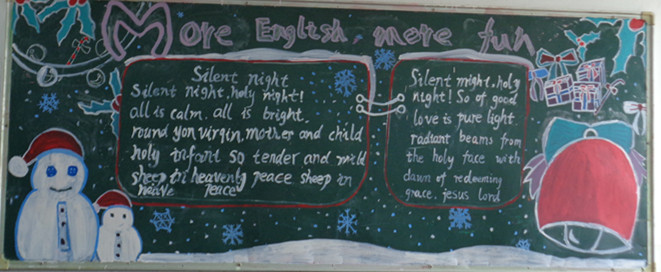 More English more fun
Silent night
Silent night, holy night!
all is calm, all is bright
round yon virgin, mother and child
holy infant so tender and mild
sheep in heavenly peace sheep in
heave peace
Silent might, holy
night! So of good
love is pure light
radiant beams from
the holy face with
dawn of redeeming
grace, jesus Lord